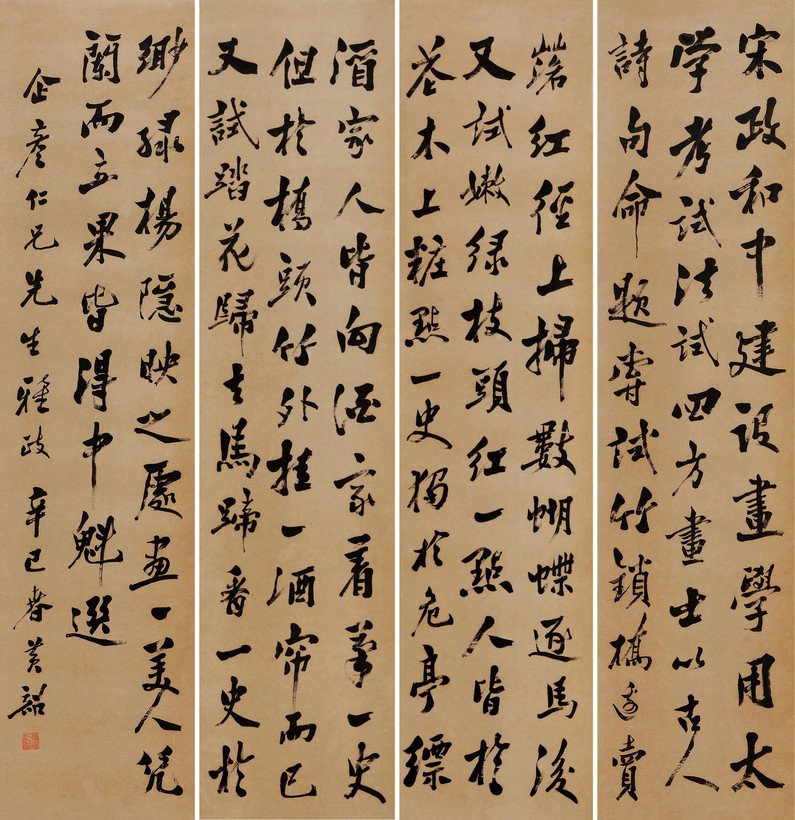 宋政和中建設畫學用太
学考試法試四方畫士以古人
詩句命題嘗試竹鎖橋邊賣
红徑上掃數蝴蝶逐馬後
又試嫩绿枝頭红一點人皆於
花木上粧點一史獨於危亭縹
酒家人皆向酒家着筆一史
但於橋頭竹外挂一酒帘而已
又試踏花歸去馬蹄香一史於
缈绿楊隱映之處画一美人凭
闌而立果皆得中魁選
企彦仁兄先生雅政 辛巳春黄